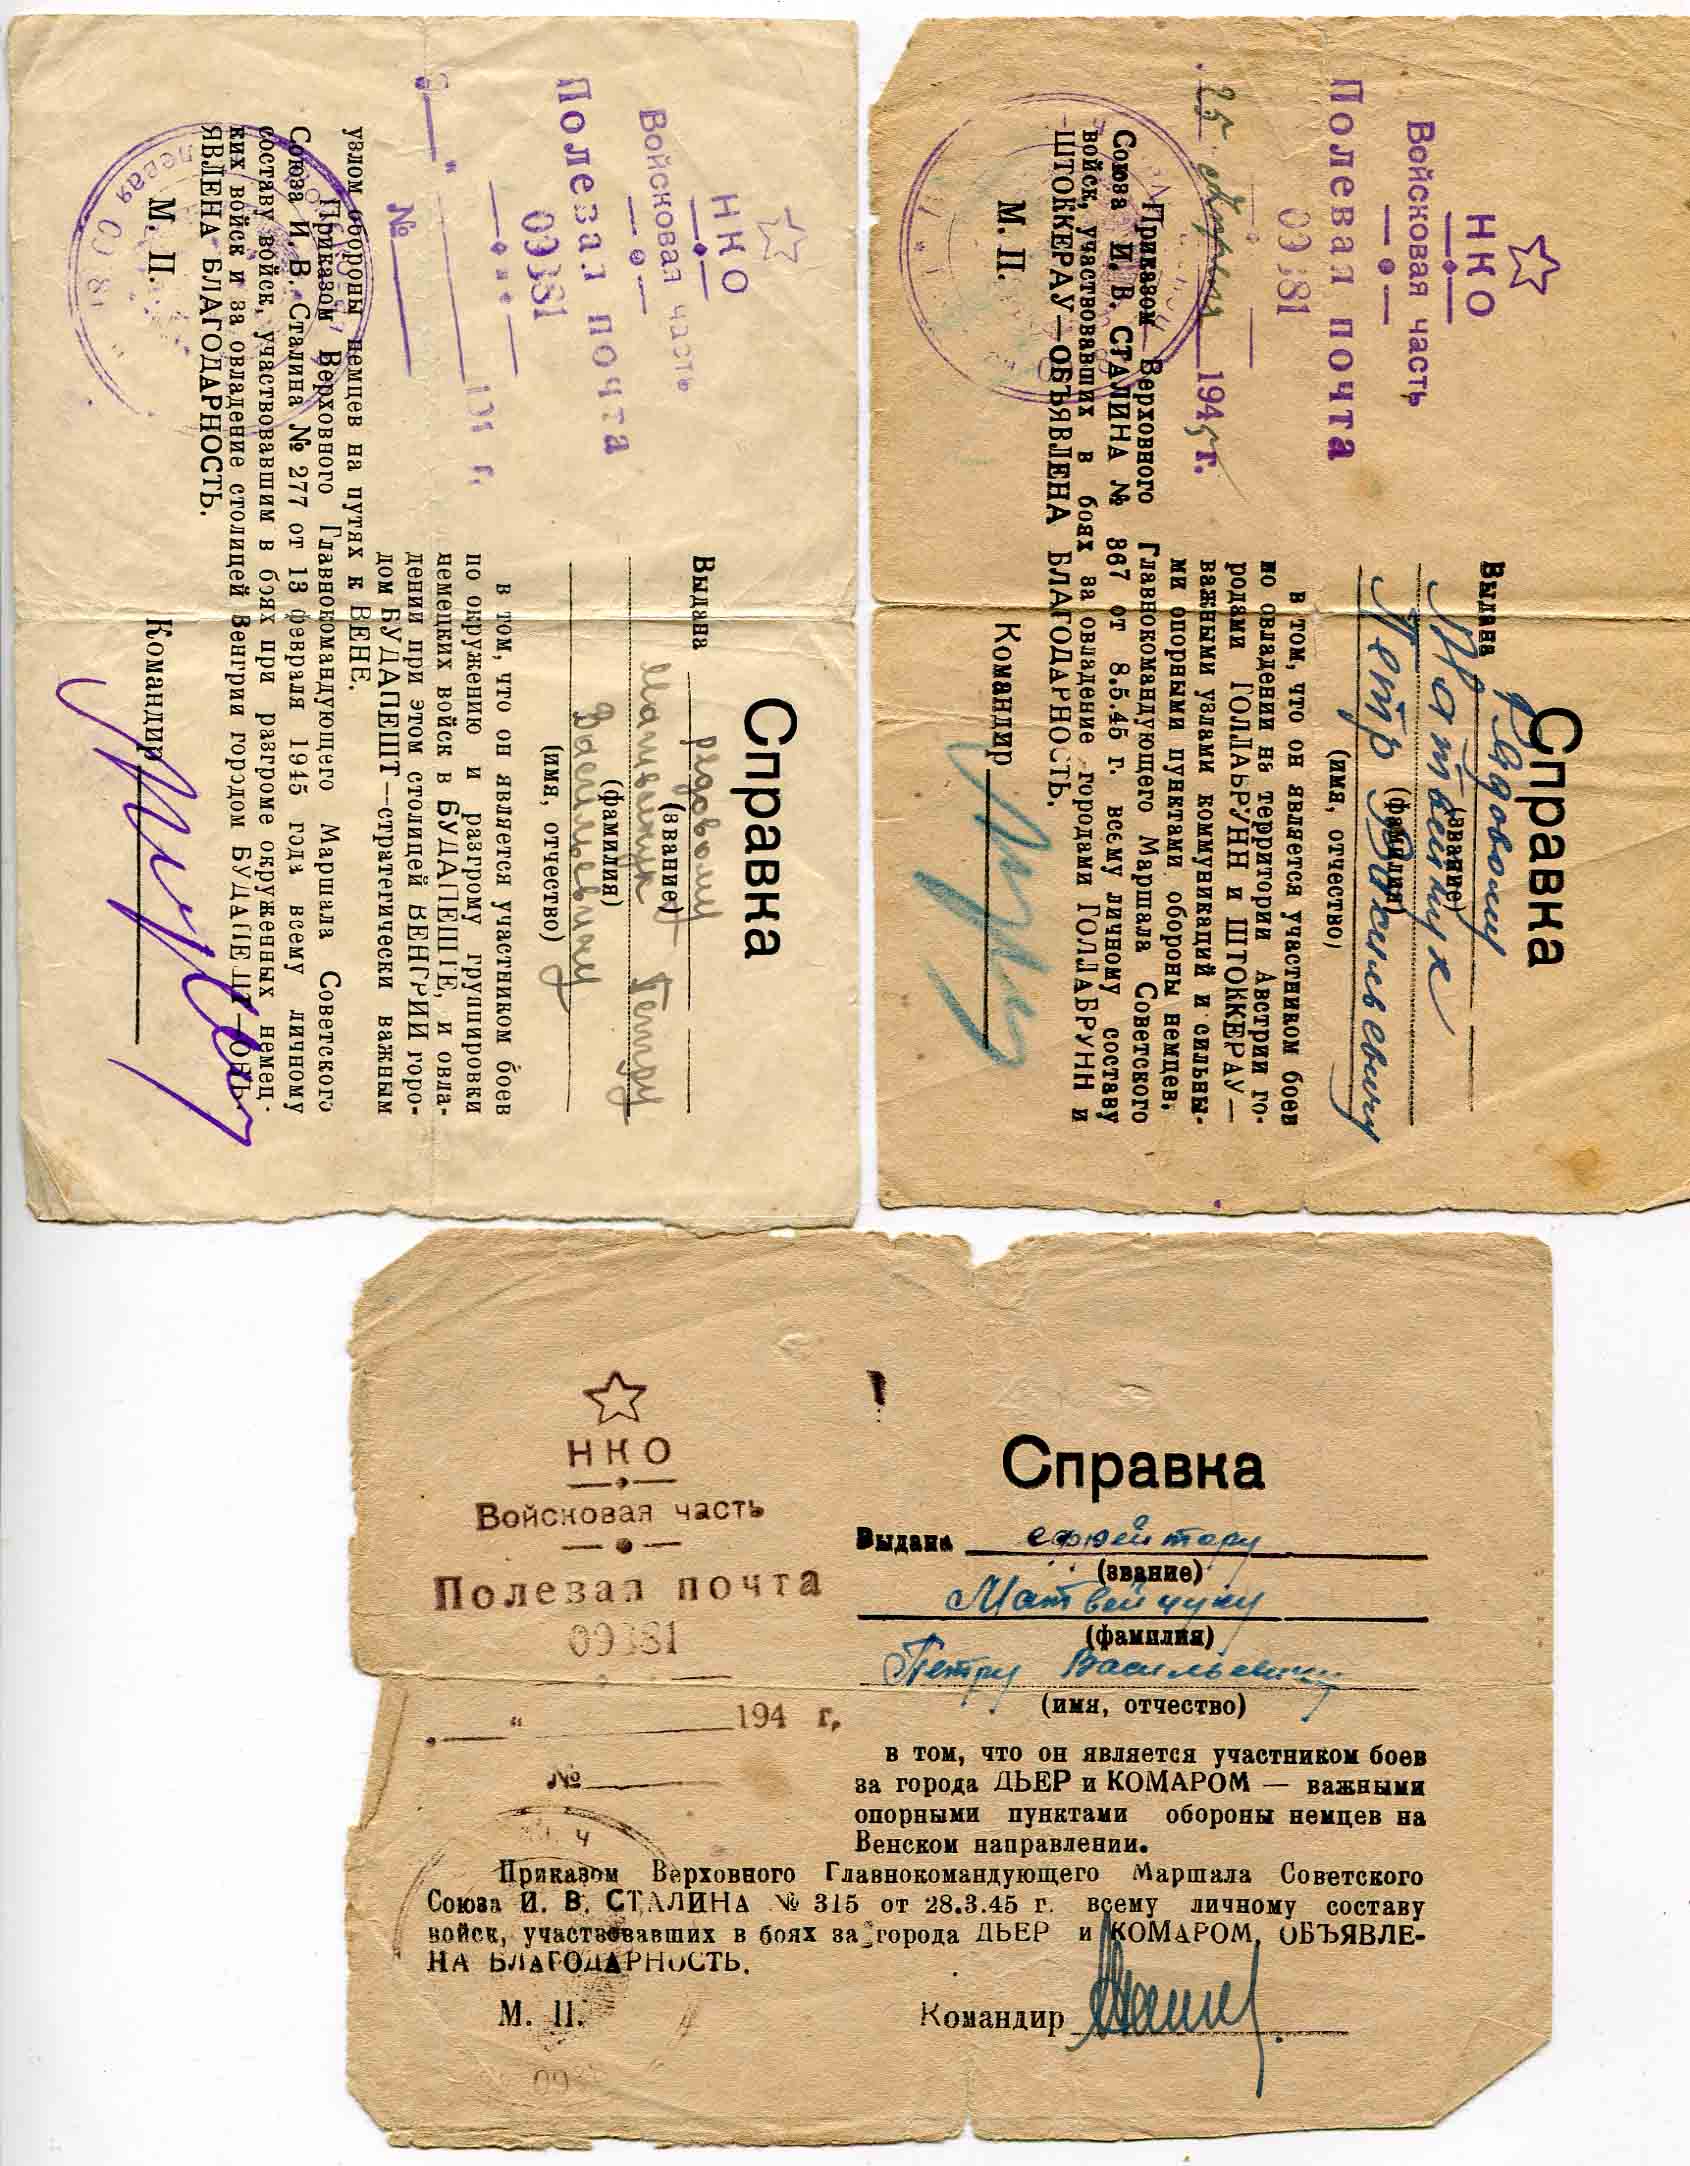 НКО
Войсковая часть
Полевая почта
09381
194 г.
№
Справка
Выдана рядовому
(звание)
Матвейчук Петру
(фамилия)
Васильевичу
(имя, отчество)
в том, что он является участником боев
по окружению и разгрому группировки
немецких войск в БУДАПЕШТЕ, и овла-
дении при этом столицей ВЕНГРИИ горо-
дом БУДАПЕШТ—стратегически важным
узлом обороны немцев на путях к ВЕНЕ.
Приказом Верховного Главнокомандующего Маршала Советского
Союза И. В. Сталина № 277 от 13 февраля 1945 года всему личному
составу войск, участвовавшим в боях при разгроме окруженных немец-
ких войск и за овладение столицей Венгрии городом БУДАПЕШТ—ОБЪ-
ЯВЛЕНА БЛАГОДАРНОСТЬ.
М. П.
Командир
НКО
Войсковая часть
Полевая почта
09381
1945 г.
Справка
Выдана Рядовому
(звание)
Матвейчук
(фамилия)
Пётр Васильевичу
(имя, отчество)
в том, что он является участником боев
по овладении на территории Австрии го-
родами ГОЛЛАБРУНН и ШТОККЕРАУ—
важными узлами коммуникаций и сильны-
ми опорными пунктами обороны немцев.
Приказом Верховного Главнокомандующего Маршала Советского
Союза И. В. СТАЛИНА № 367 от 8.5.45 г. всему личному составу
войск, участвовавших в боях за овладение городами ГОЛЛАБРУНН и
ШТОККЕРАУ—ОБЪЯВЛЕНА БЛАГОДАРНОСТЬ.
М. П.
Командир
НКО
Войсковая часть
Полевая почта
09381
194 г.
№
Справка
Выдана ефрейтору
(звание)
Матвейчуку
(фамилия)
Петру Васильевичу
(имя, отчество)
в том, что он является участником боев
за города ДЬЕР и КОМАРОМ — важными
опорными пунктами обороны немцев на
Венском направлении.
Приказом Верховного Главнокомандующего Маршала Советского
Союза И. В. СТАЛИНА № 315 от 28.3.45 г. всему личному составу
войск, участвовавших в боях за города ДЬЕР и КОМАРОМ, ОБЪЯВЛЕ-
НА БЛАГОДАРНОСТЬ.
М. П.
Командир